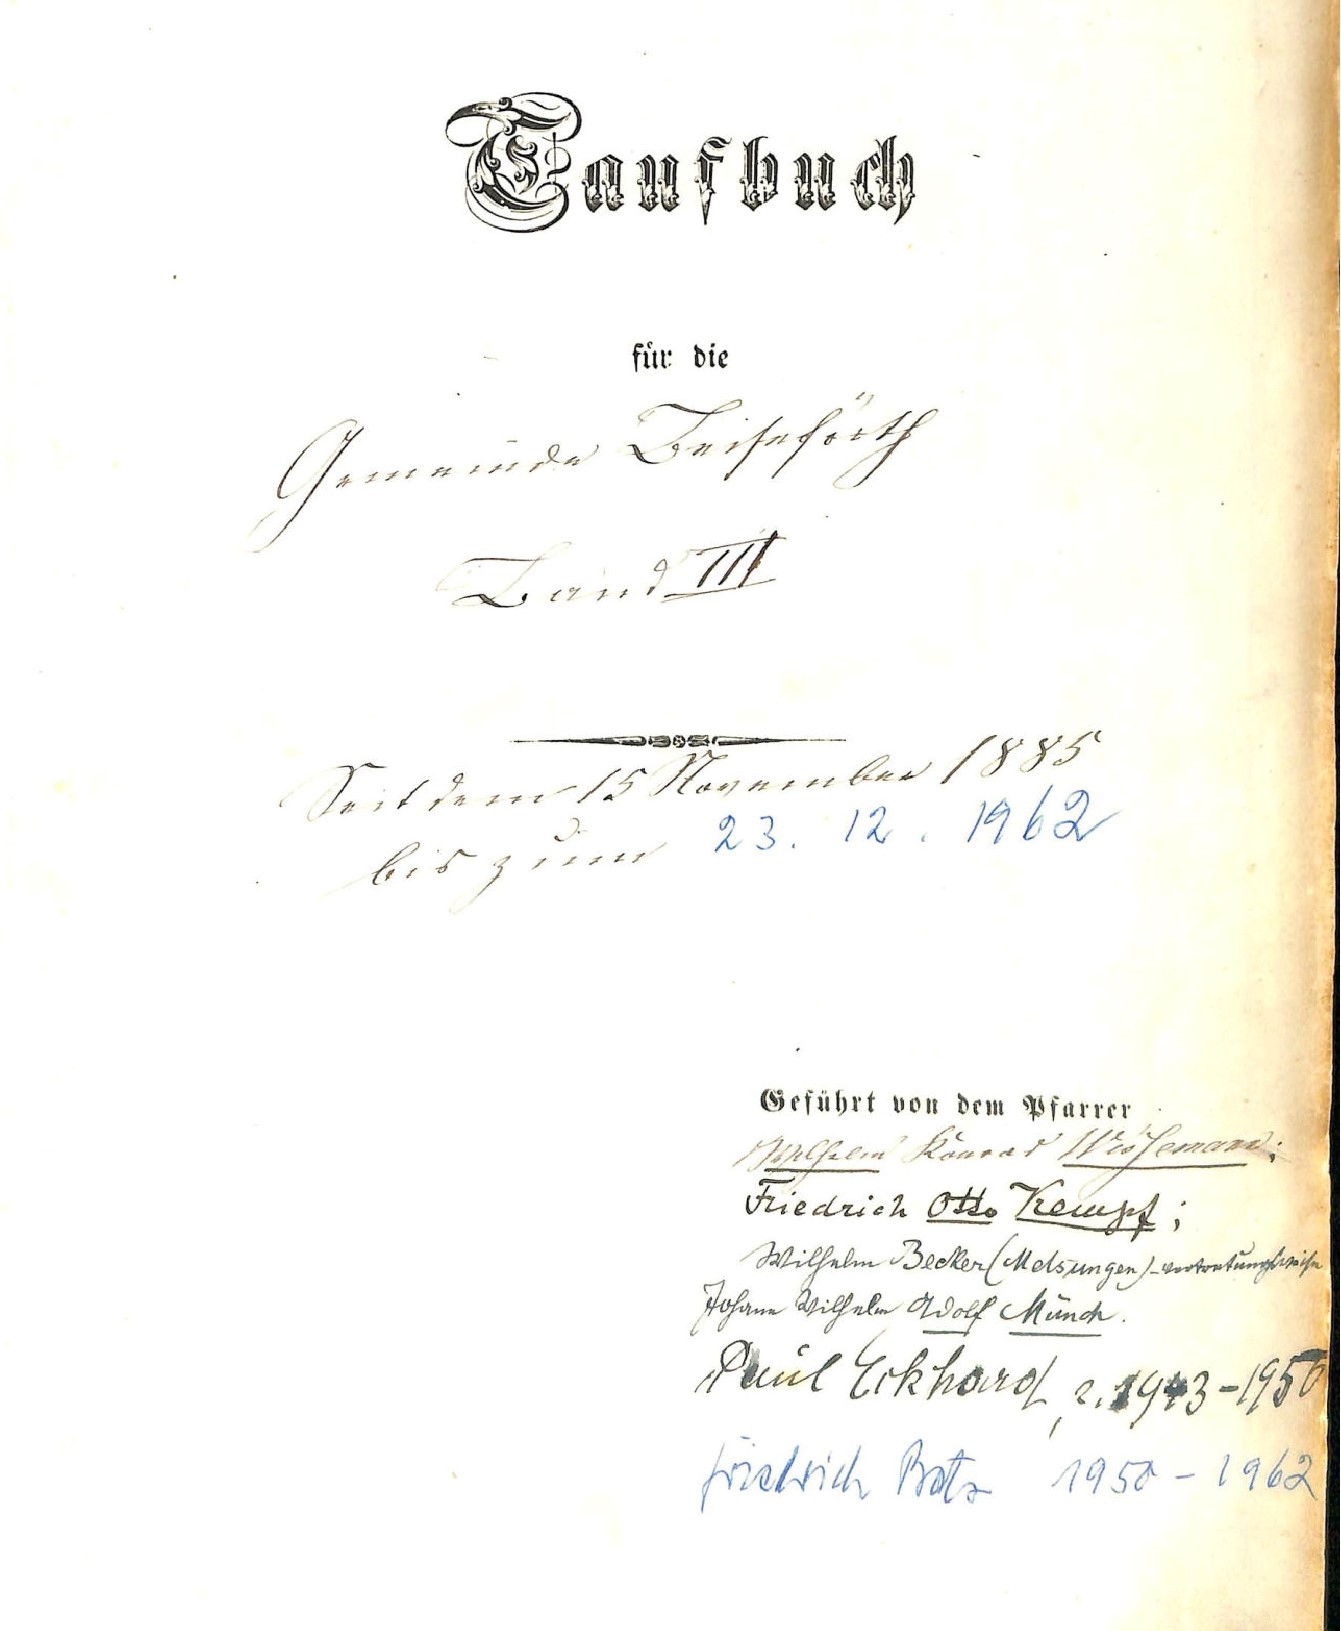 Taufbuch
für die
Gemeinde Beiseförth
Band III
Seit dem 15 November 1885
bis zum 23. 12. 1962
Geführt von dem Pfarrer
Wilhelm Konrad Wissemann;
Friedrich Otto Kempf;
Wilhelm Becker (Melsungen) - vertretungsweise
Johann Wilhelm Adolf Münch.
Paul Eckhard, 1943-1950
Friedrich 1950 - 1962